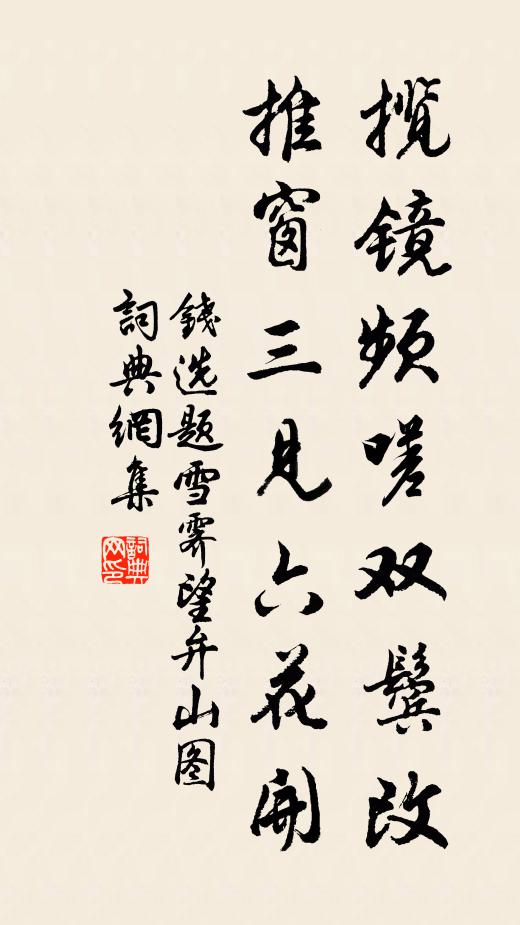 揽镜频嗟双鬓改
推窗三见六花开
錢选题雪霁望弁山图
詞典網集
詞典网印